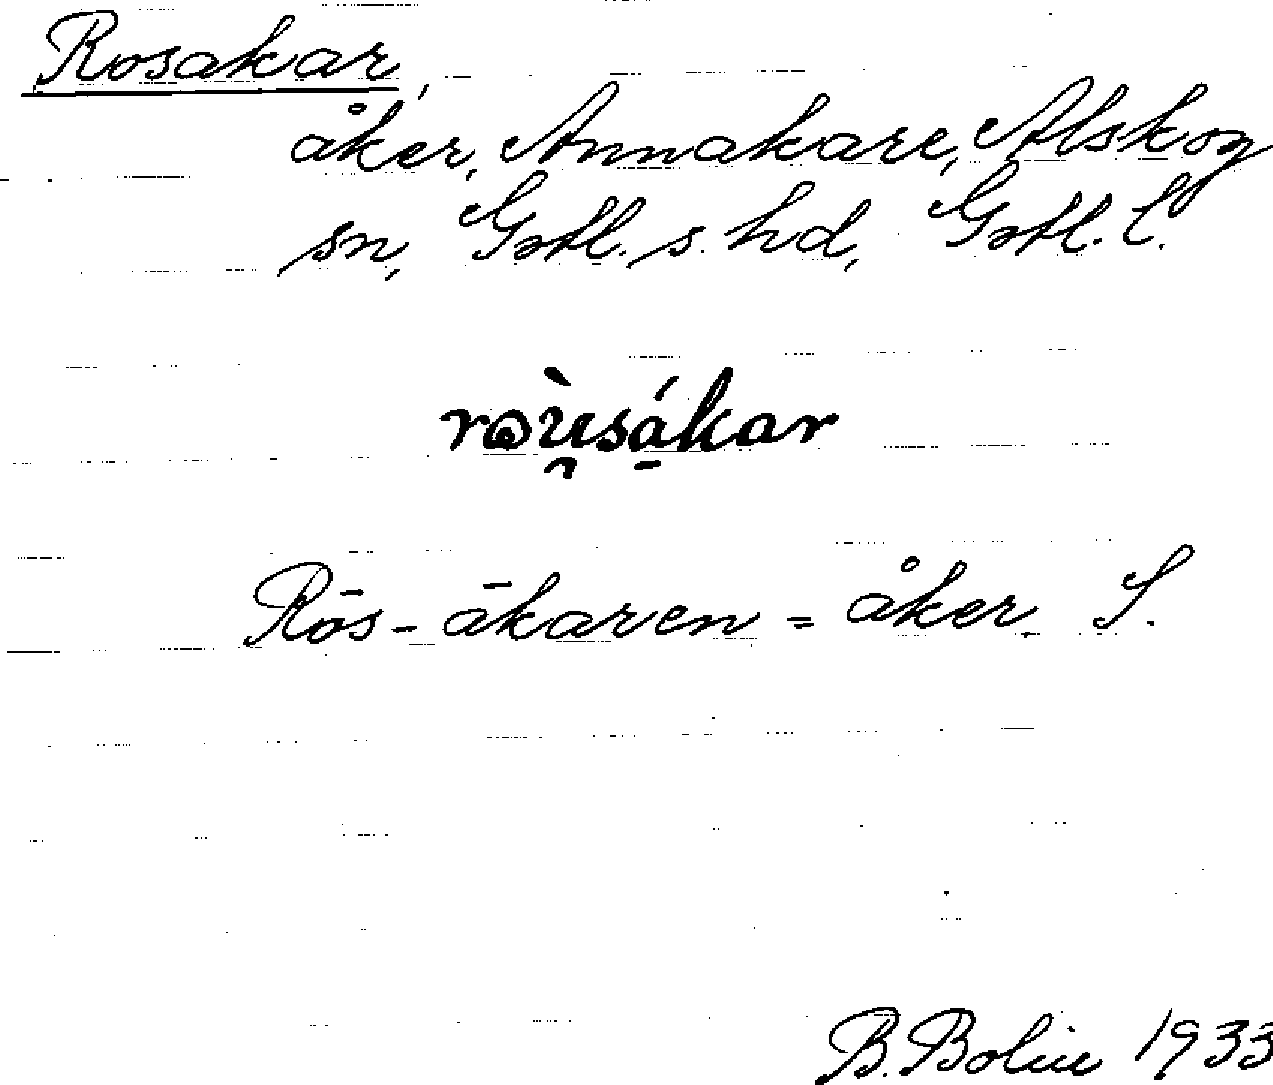 Rosakar,
åker, Annakare, Alskog
sn, Gotl. s. hd, Gotl. l.
Rōs-ākaren = åker. S.
B. Bolin 1933